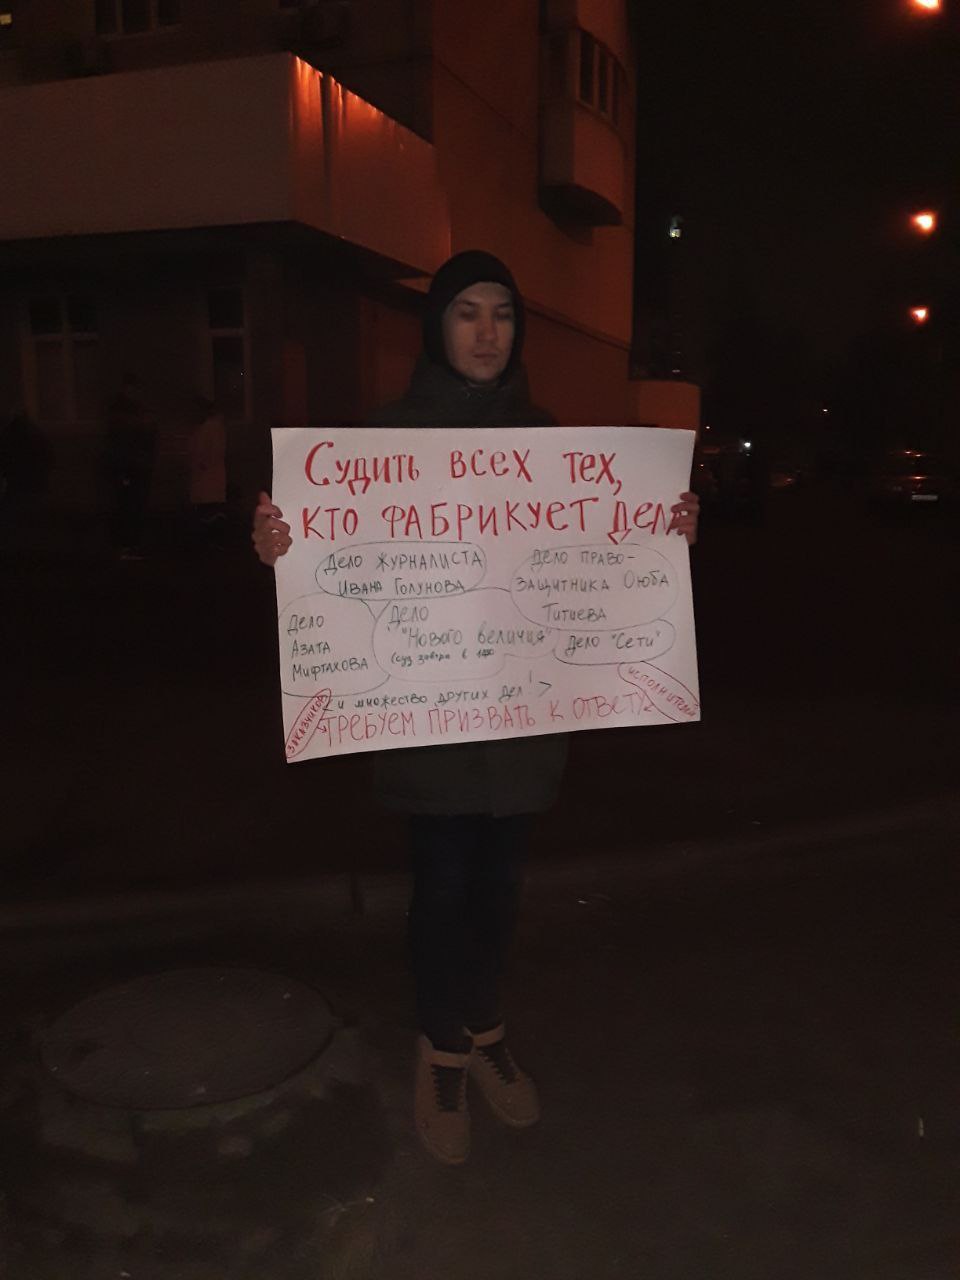 Судить всех тех,
кто фабрикует дела
Дело журналиста
Ивана Голунова
Дело право-
защитника Оюба
Титиева
Дело
Азата
Мифтахова
Дело
"Нового величия"
(суд завтра в
Дело "Сети"
<и множество других дел!>
заказчиков
исполнителей
Требуем призвать к ответу